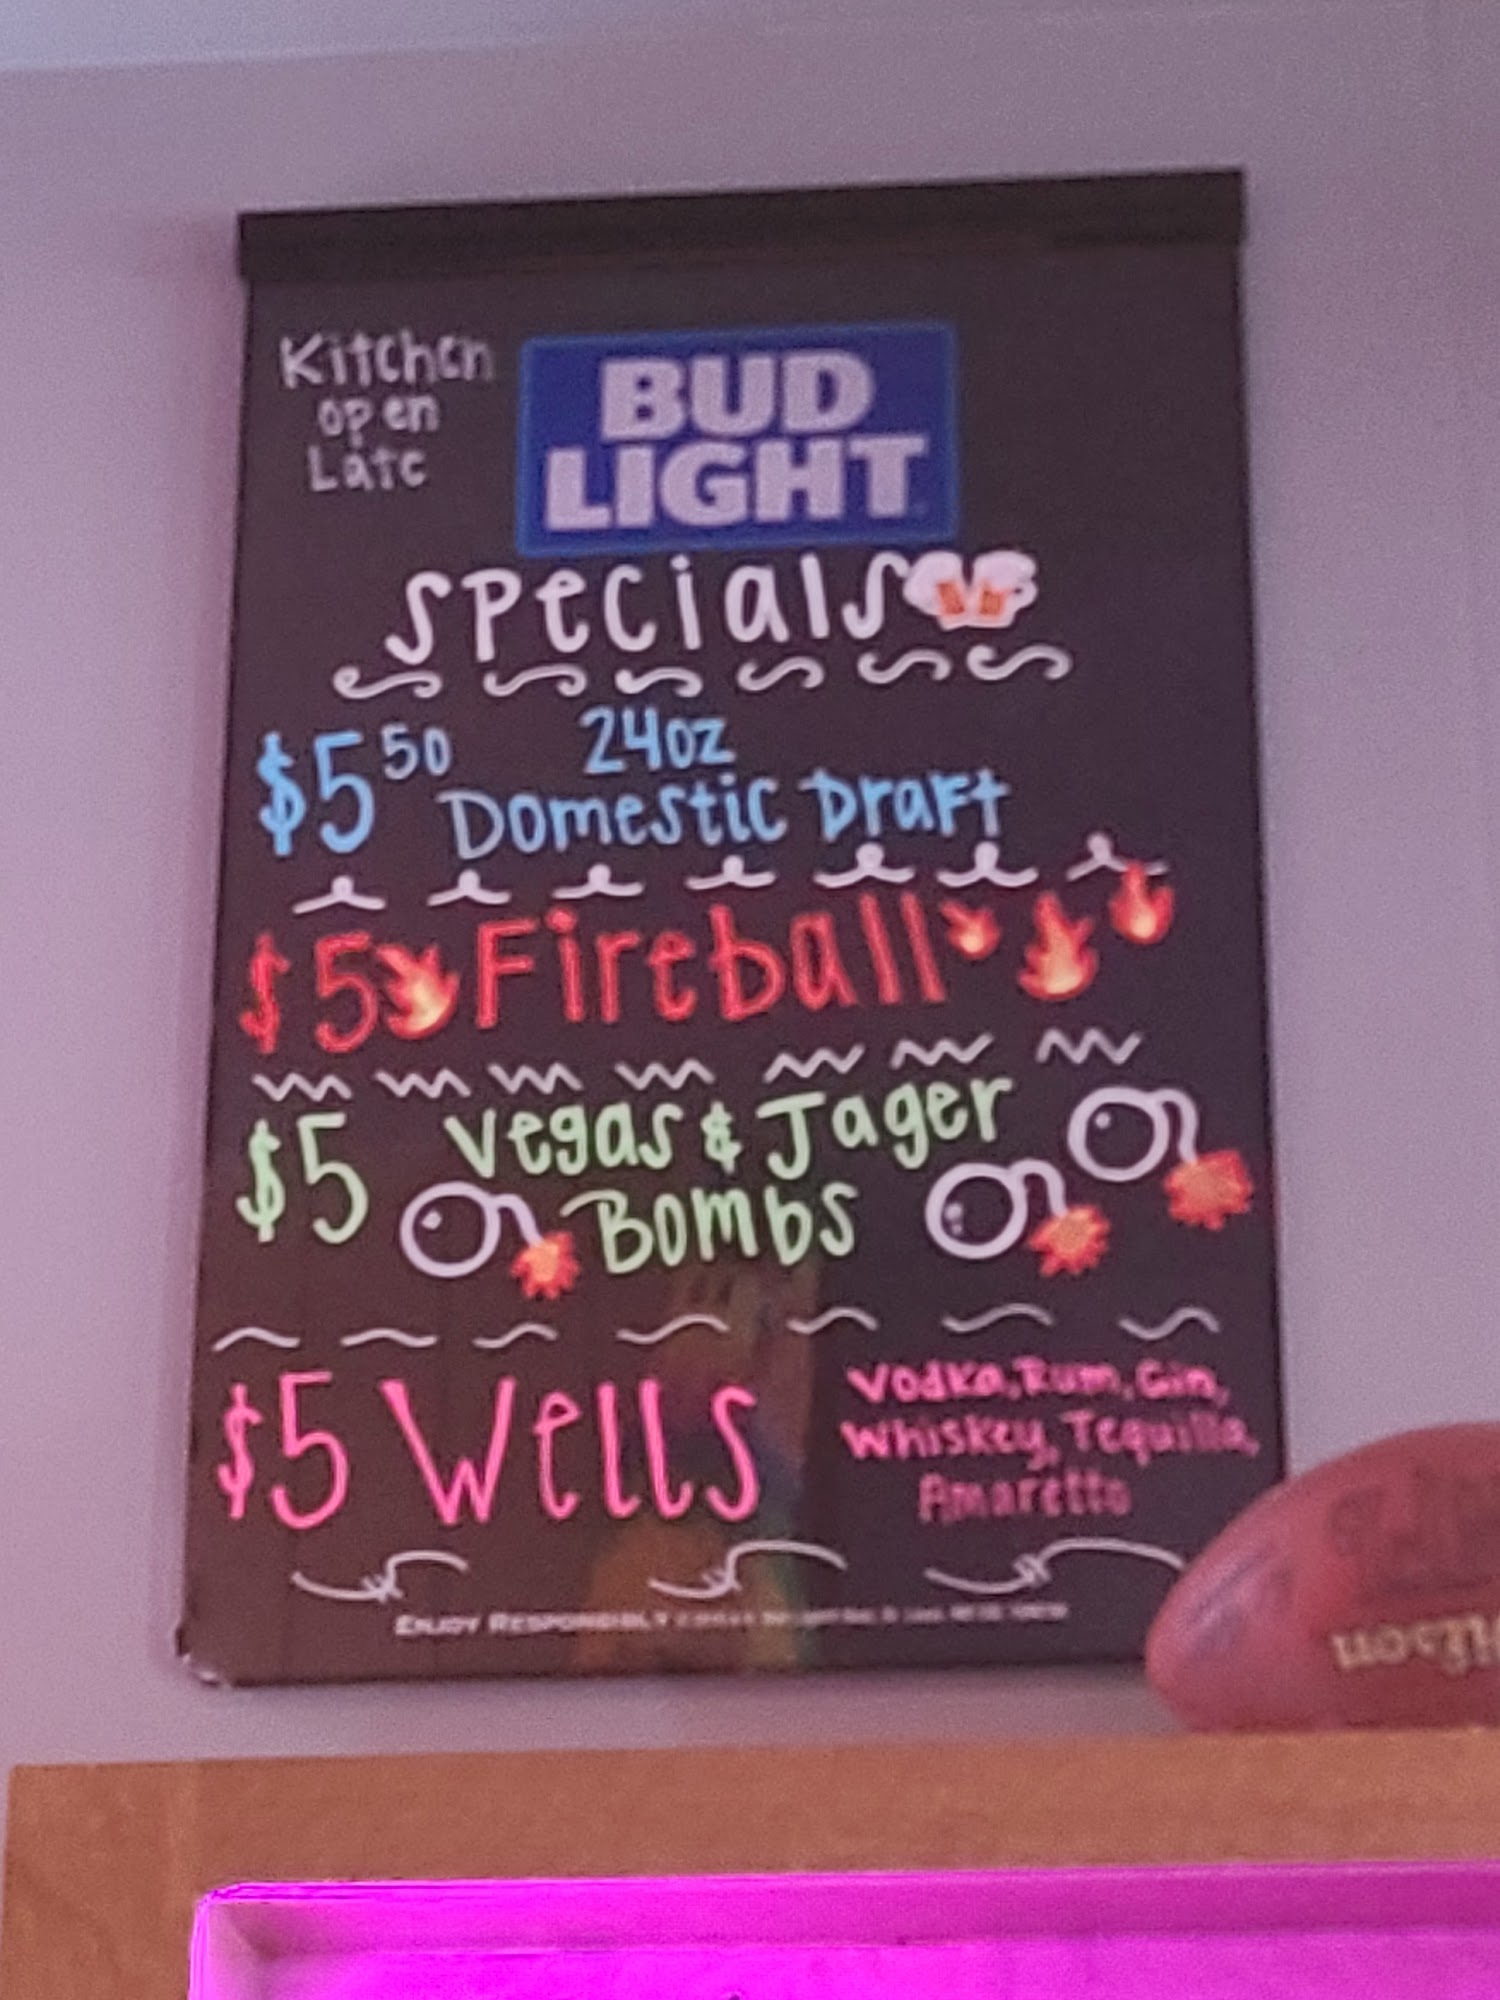 Kitchen
open
Late
BUD
LIGHT
Specials
$5 50 24oz
Domestic Draft
$5 Fireball
$5 Vegas & Jager
Bombs
$5 Wells
Vodka, Rum, Gin,
Whiskey, Tequilla,
Amaretto
ENJOY RESPONSIBLY